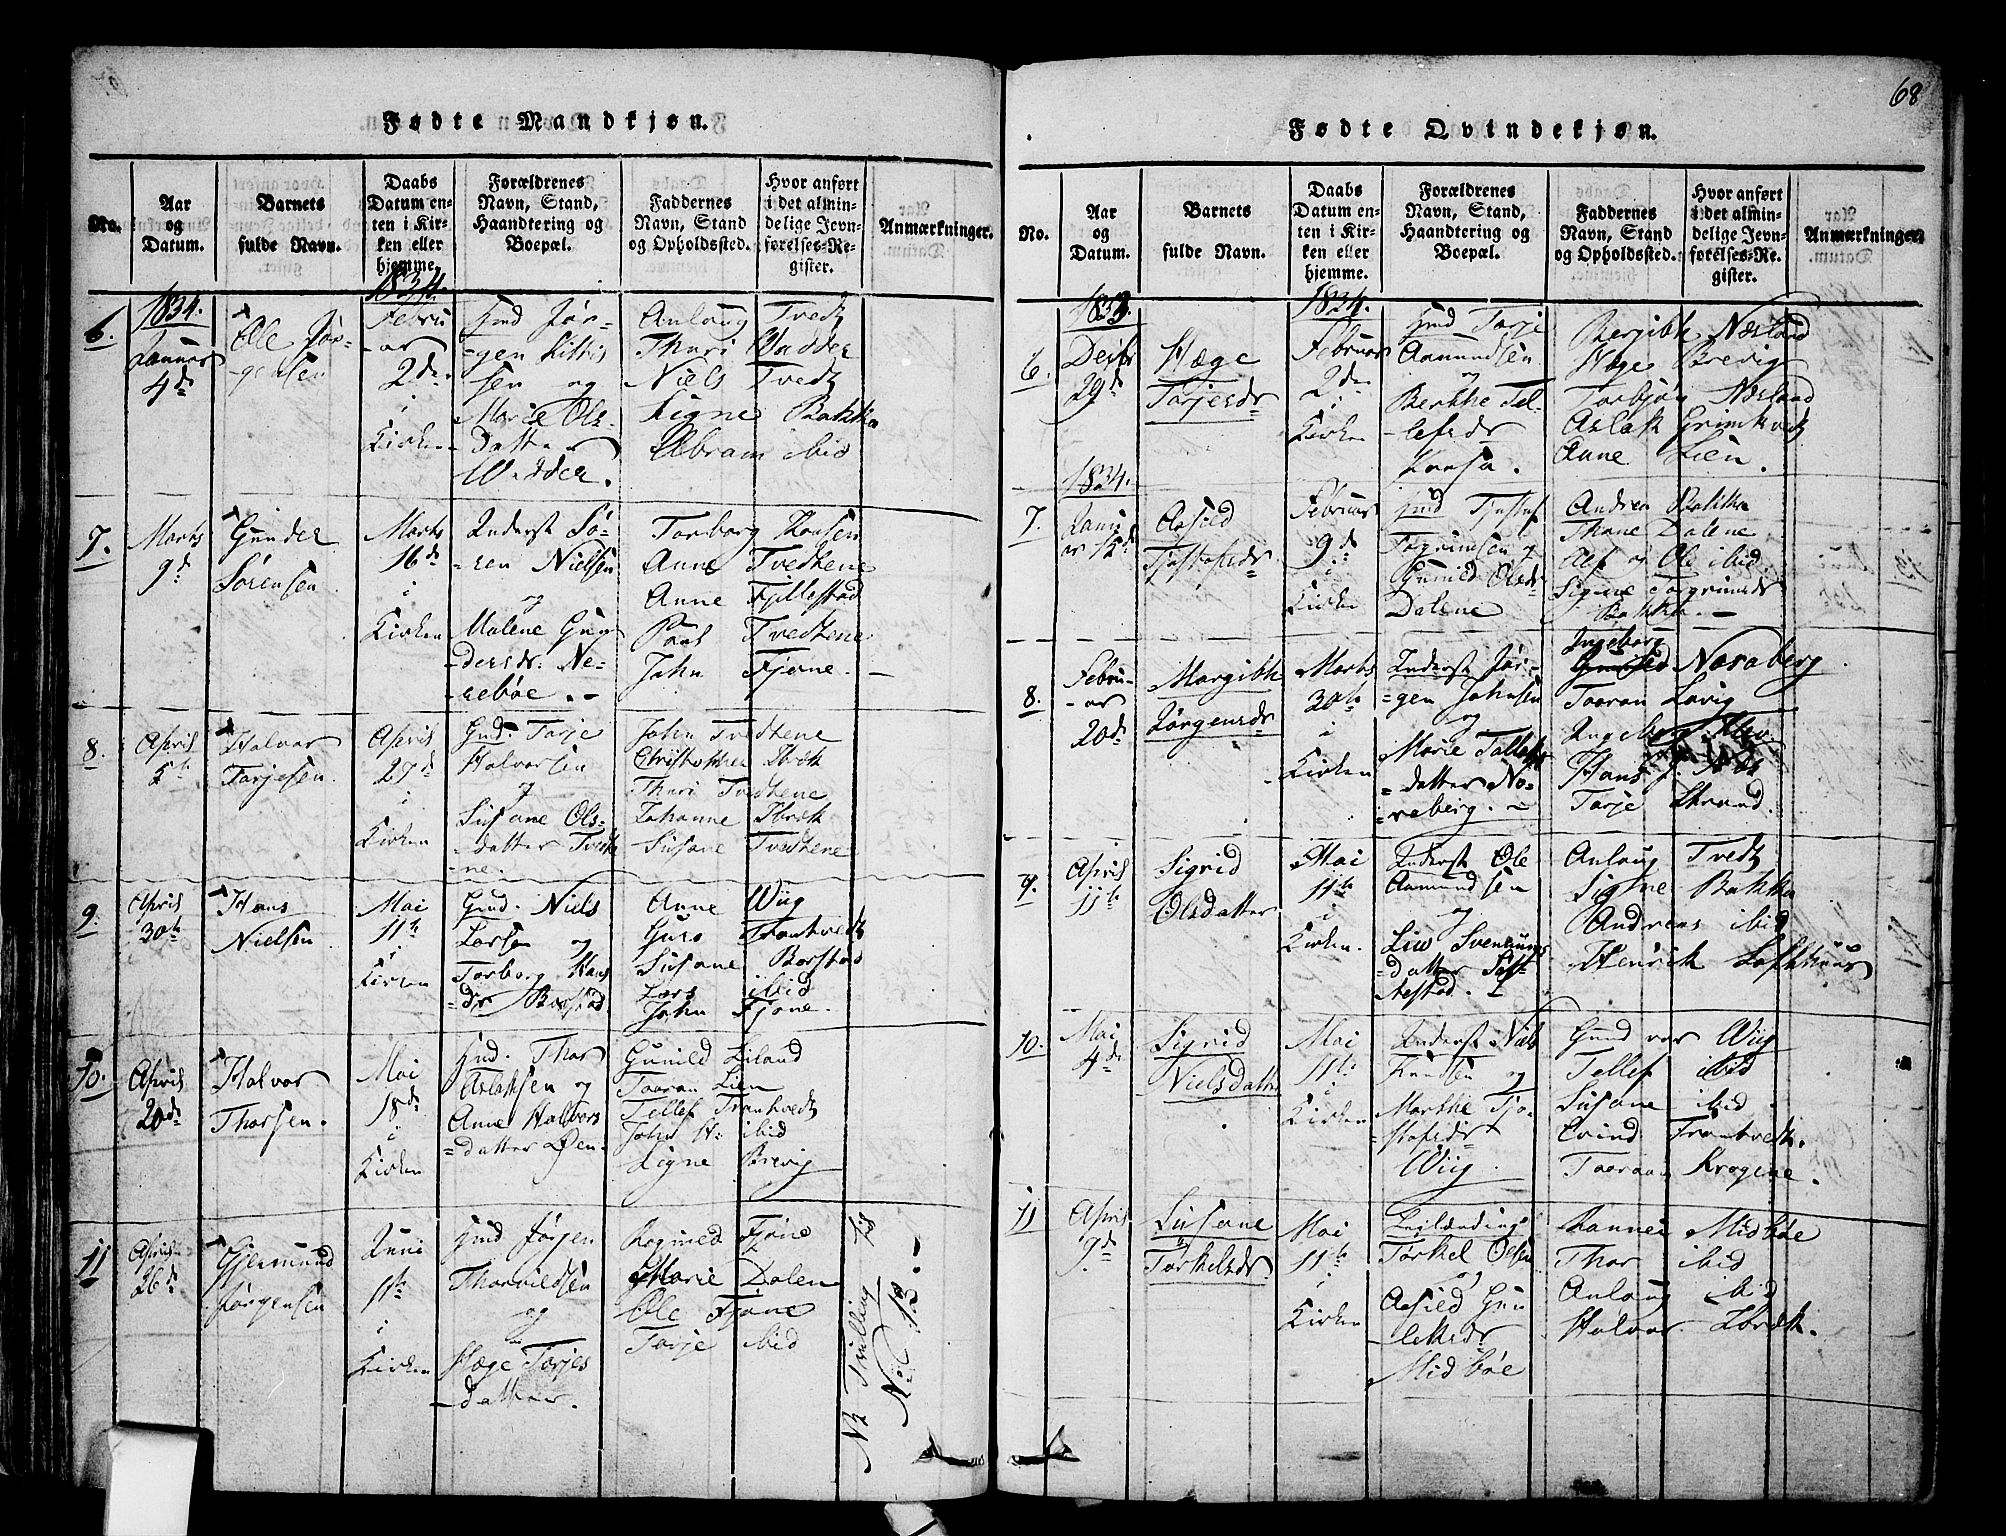 68
Fødte Mandkjøn.
No.
Aar
og
Datum.
Barnets
fulde Navn.
Daabs
Datum en-
ten i Kir-
ken eller
hjemme.
Forældrenes
Navn, Stand,
Haandtering og
Boepæl.
Faddernes
Navn, Stand
og Opholdssted.
Hvor anført
i det almin-
delige Jevn-
førelses-Re-
gister.
Anmærkninger.
6.
1834.
Januar
4de
Ole Jør-
gensen
1834.
Febru
-ar
2den
i
Kirken
Gmd Jør-
-gen
sen og
Marie Ols-
Datter
Anlaug Tvedt
Thuri Vadder
Niels Tvedt
Signe Bakka
Abram ibid
7.
Marts
9d
Gunder
Sørensen
Marts
16d
i
Kirken
Inderst Sø-
-ren Nielsen
og
Malene Gun
-dersdr. Ne-
-rebøe.
Torborg
Anne Tvedtene
Anne Fjillestad
Tvedtene
John Fjone.
8.
April
5te
Halvor
Tarjesen.
April
27d
i
Kirken
Gmd Tarje
Halvorsen
og
Susane Ols-
-datter Tvedte
-ne.
John Tvedtene
Thuri Tvedtene
Johanne
Susane Tvedtene
9.
April
30te
Hans
Nielsen
Mai
11te
i
Kirken
Gmd. Niels
Larsen og
Torborg Hans
-dr Borstad
Anne Wiig
Guro Trontvedt
Susane Borstad
Lars ibid
John Fjone.
10.
April
20de
Halvor
Thorsen.
Mai
18de
i
Kirken
Gmd. Thor
Aslaksen og
Anne Halvors
-datter Øen.
Gunild Eiland
Taaran Lien
Tellef Trontvedt
John H: ibid
Signe Brevig
11
April
26d
Gjermund
Jørgensen
Juni
11te
i
Kirken
Gmd Jørgen
Thorvildsen
og
Hæge Tarjes
-datter.
Ragnild Fjone
Marie Dalen
Ole Fjone
Tarje ibid
Fødte Qvindekjøn.
No.
Aar
og
Datum.
Barnets
fulde Navn.
Daabs
Datum en-
ten i Kir-
ken eller
hjemme.
Forældrenes
Navn, Stand,
Haandtering og
Boepæl.
Faddernes
Navn, Stand
og Opholdssted.
Hvor anført
i det almin-
delige Jevn-
førelses-Re-
gister.
Anmærkninger.
6.
1833
29d
Hæge
Tarjesdr
1834.
Februar
2den
i
Kirken
Gmd Tarje
Aamundsen
og
Berthe Tel-
-lefsdr
Bergithe Næsland
Hæge Brevig
Torbjør Næsland
Aslak Grimtvedt
Anne Lien.
7.
1834.
Janu
ar
Aasild
Februar
9de
i
Kirken
Gmd
Torgrimsen og
Gunild Olsdr
Dalene
Andrea Bakka
Thone Dalene
og Ole ibid.
Signe Torgrimsdr
Bakka. -
8.
Febru-
-ar
20de
Margithe
Jørgensdr
Marts
30te
i
Kirken
Inderst Jør-
-gen Johnsen
og
Marie Tallefs
-datter No-
-raberg.
Ingeborg
Noraberg
Taaran Lavig
Ingeborg
Hans
Tarje Strand.
9.
April
11te
Sigrid
Olsdatter
Mai
11te
i
Kirken.
Inderst Ole
Aamundsen
og
Liv Svenungs
-datter
Anlaug Tvedt
Signe Bakka
Andreas ibid
Henrik Lofthuus
10.
Mai
4de
Sigrid
Nielsdatter
Mai
11te
i
Kirken
Inderst Niels
Knudsen og
Marthe Tjo-
-stofsdr
Wiig
Wiig
Tellef ibid
Susane ibid
Evind Trontvedt.
Taaran Krogene.
11
April
7de
Susane
Torkelsdr.
Mai
11te
i
Kirken
Torkel Olsen
og
Aasild Gun
-leksdr
Midbøe
Midbøe
Thor ibid
Anlaug ibid
Halvor